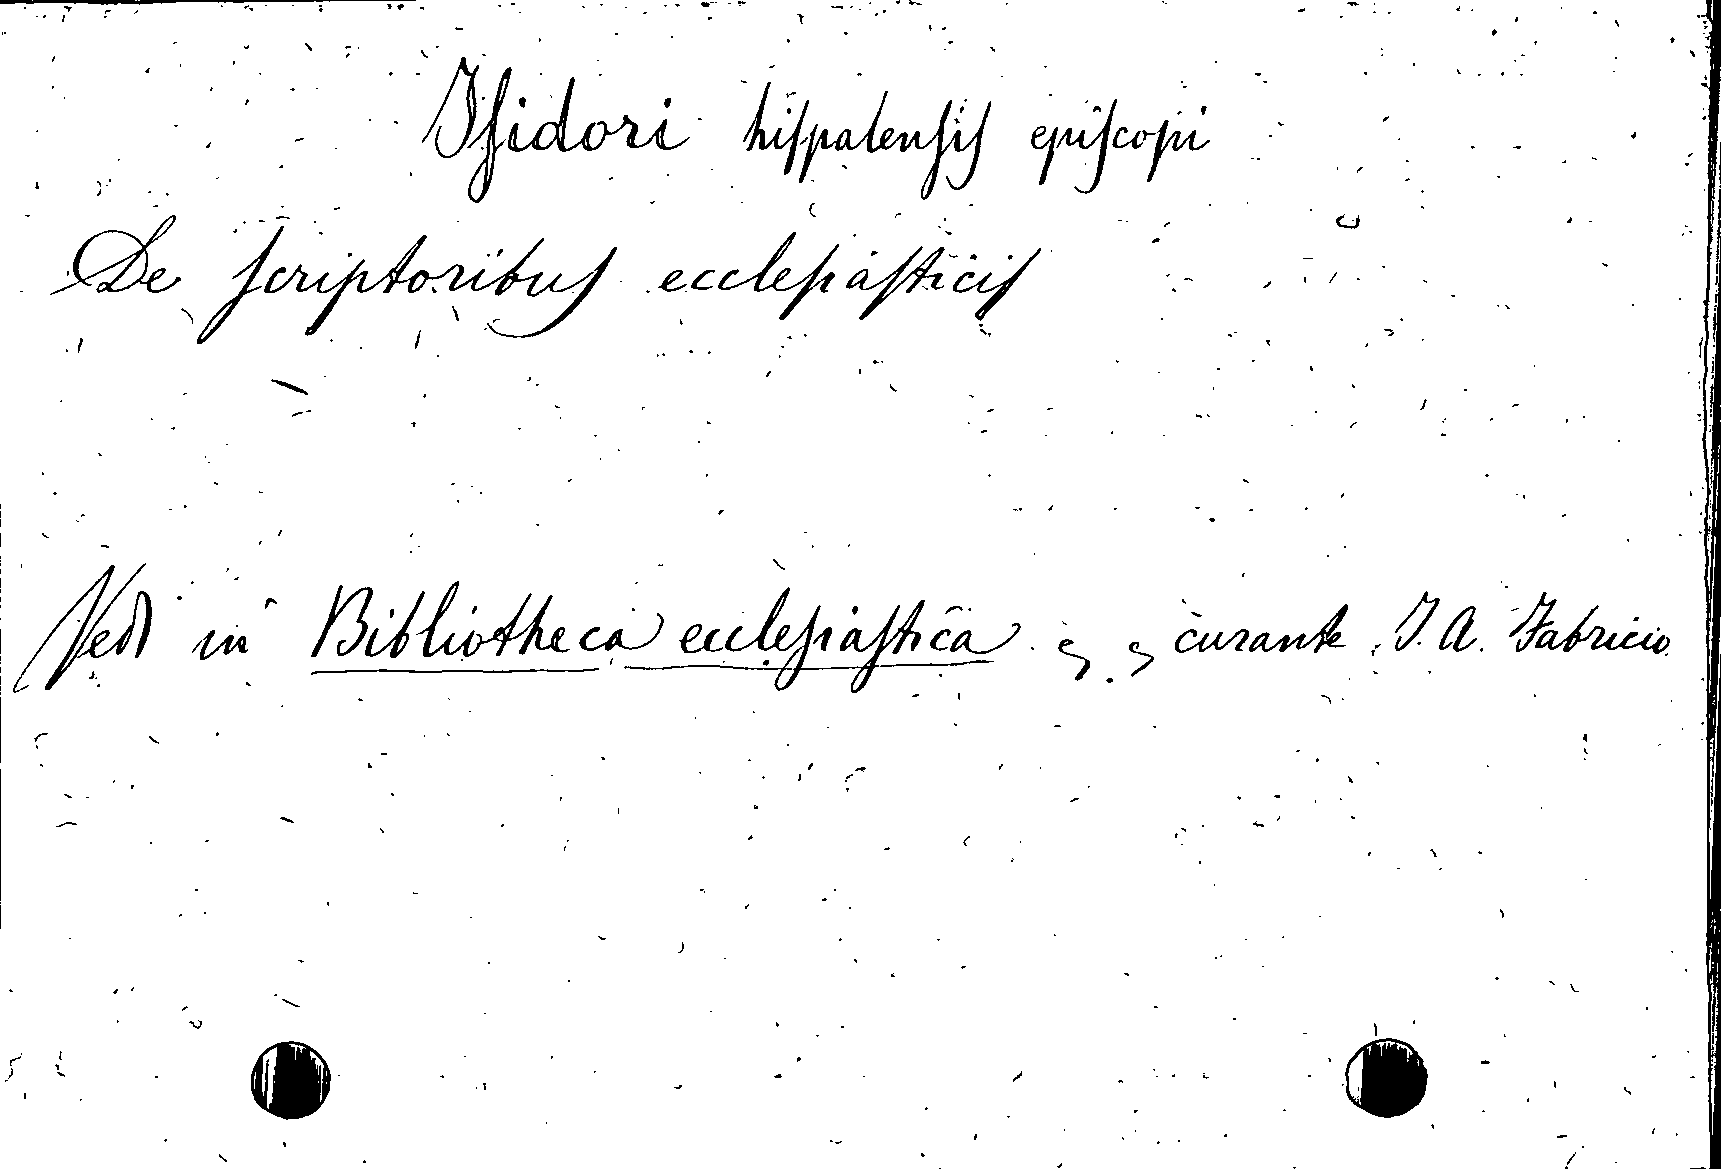 Isidori hispalensis episcopi
De scriptoribus ecclesiasticis
Vedi in Bibliotheca ecclesiastica , , curante J. A. Fabricio